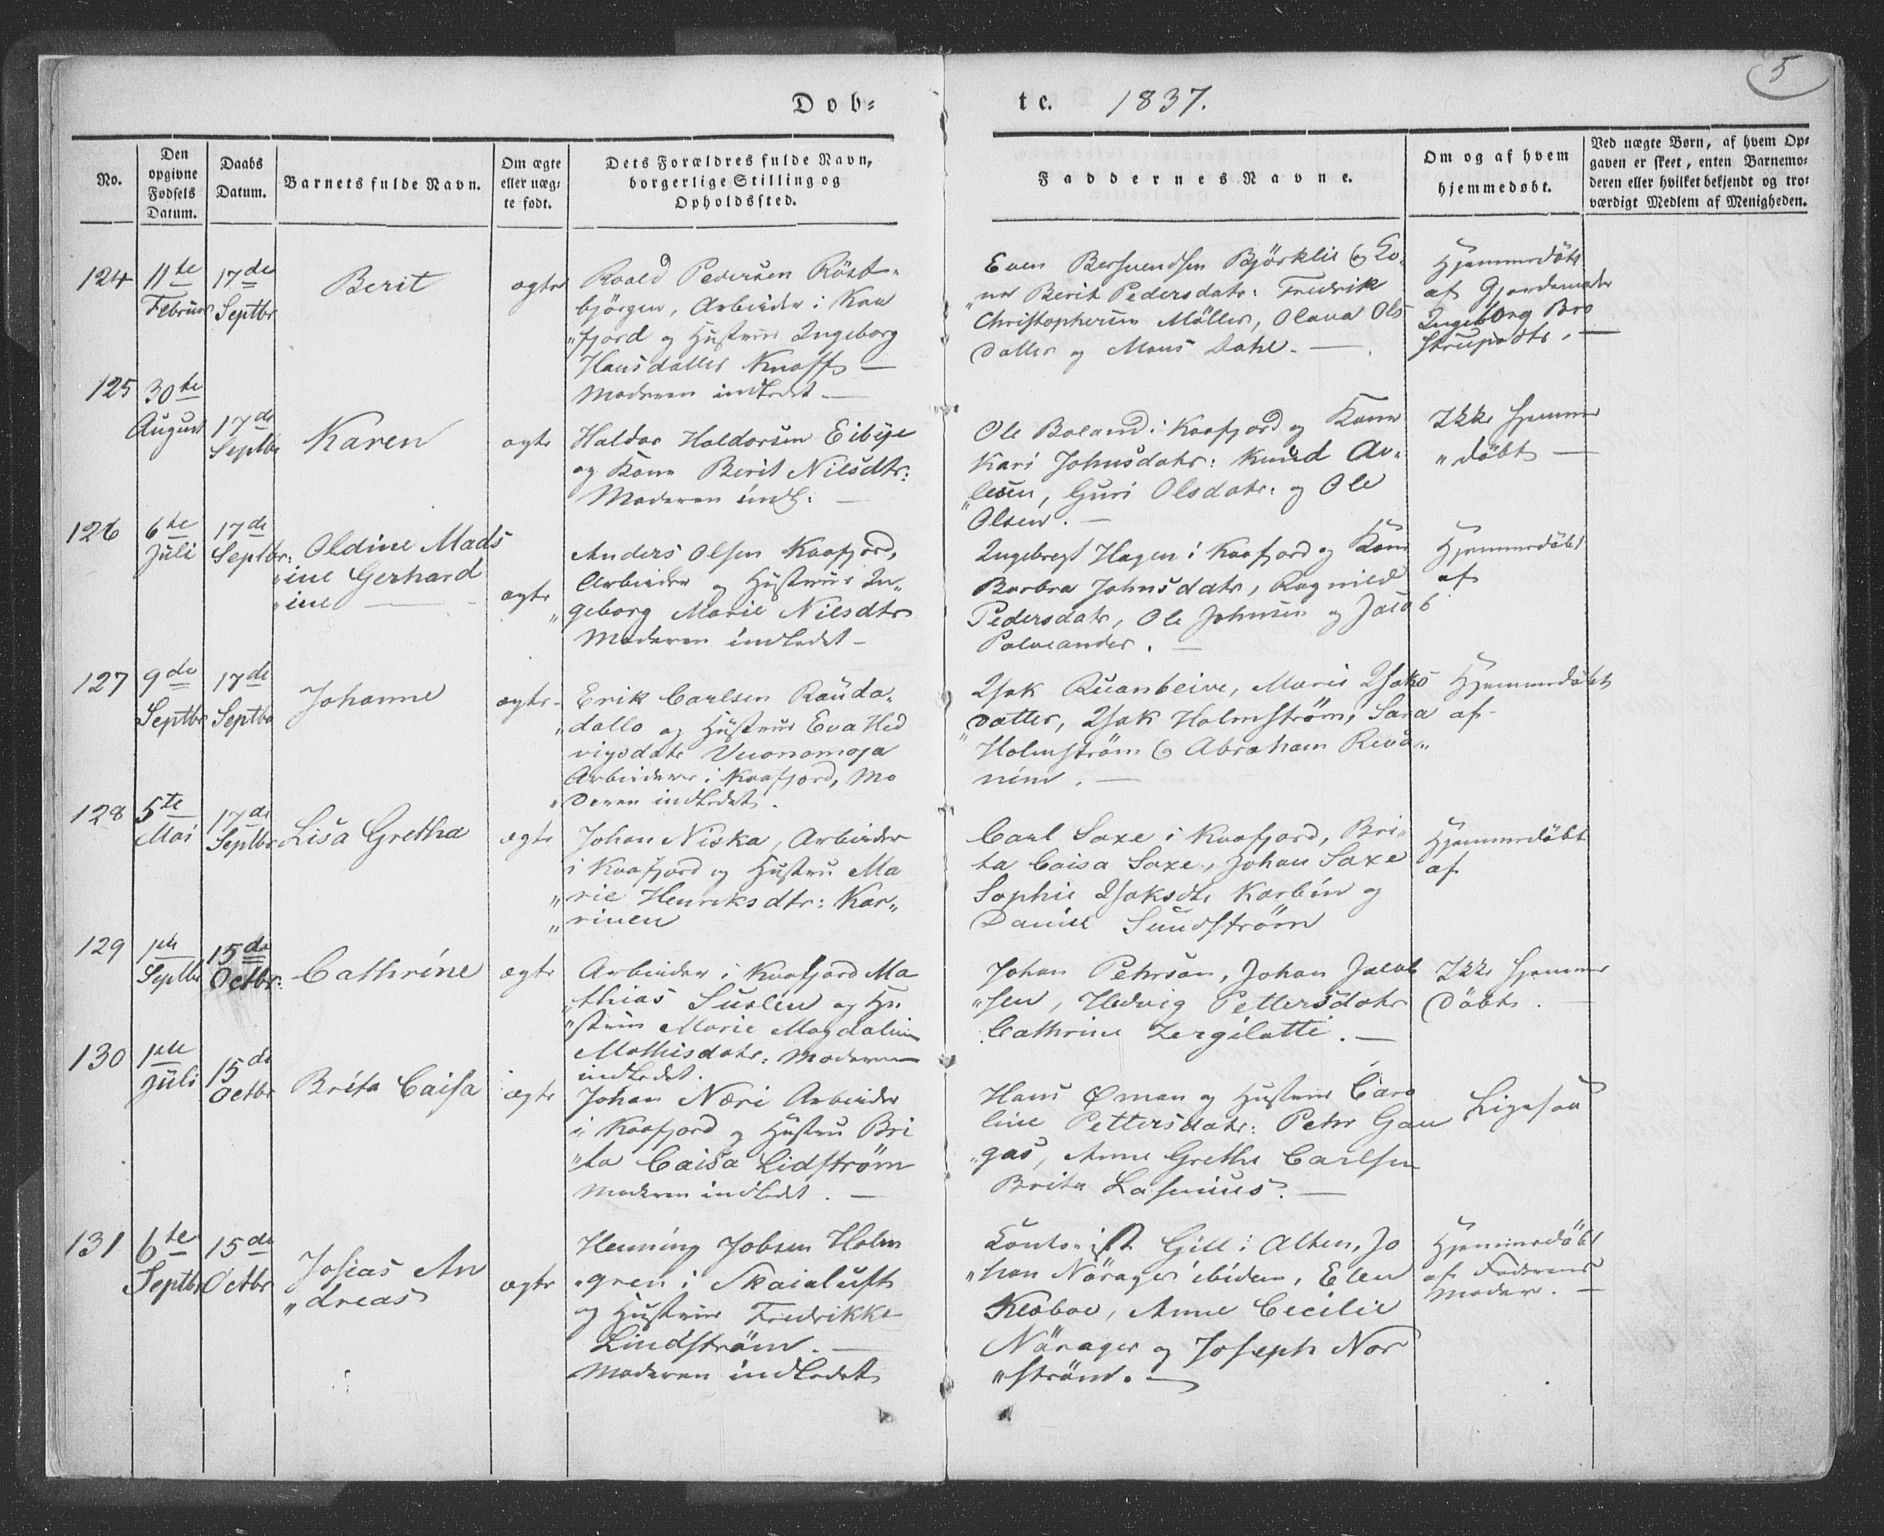 5
Døb- te. 1837.
No.
Den opgivne Fødsels Datum.
Daabs Datum.
Barnets fulde Navn.
Om ægte eller uægte født.
Dets Forældres fulde Navn, borgerlige Stilling og Opholdssted.
Faddernes Navne.
Om og af hvem hjemmedøbt.
Ved uægte Børn, af hvem Opgaven er skeet, enten Barnemoderen eller hvilket bekjendt og troværdigt Medlem af Menigheden.
124
11te
Februar
17de
Septbr
Berit
ægte
Roald Pedersen Röst-
björgen, Arbeider i Kaa
"fjord og Hustrue Ingeborg
Hansdatter Knoff —
Moderen indledet —
Even Bersvendsen Björklie &
Berit Pedersdatr: Fredrik
Christophersen Möller, Olava Ols
Datter og Mons Dahl. —
Hjemmedöbt
af Gjordemoder
Ingeborg
125
30te
August
17de
Septbr
Karen
ægte
Haldor Haldorsen Eibye
og Kone Berit Nilsdtr:
Moderen indl: —
Ole Boland i Kaafjord og Kone
Kari Johnsdatr: Knud Ar-
"lesen, Guri Olsdatr: og Ole
Olsen. —
Ikke hjemme
"döbt —
126
6te
Juli
17de
Septbr:
Oldine Mads
"ine Gerhard
"ine —
ægte
Anders Olsen Kaafjord,
Arbeider og Hustrue In-
"geborg Marie Nilsdtr
Moderen indledet —
Ingebregt Hagen i Kaafjord og Kone
Barbra Johnsdatr, Ragnild
Pedersdatr, Ole Johnsen og Jacob
Palveander. —
Hjemmedöbt
af
127
9de
Septbr
17de
Septbr
Johanne
ægte
Erik Carlsen Rauda-
"dallo og Hustrue Eva Hed
vigsdatr Vuonomoja
Arbeidere i Kaafjord, Mo
"deren indledet.
Isak Ruanbeive, Marie Isaks
Datter, Isak Holmström, Sara
Holmström & Abraham Riva-
"nim. —
Hjemmedöbt
af
128
5te
Mai
17de
Septbr
Lisa Gretha
ægte
Johan Niska, Arbeider
i Kaafjord og Hustru Ma
"rie Henriksdtr: Kar-
"rinen
Carl Saxe i Kaafjord, Bri-
ta Caisa Saxe, Johan Saxe
Sophie Isaksdtr Karbin og
Daniel Sundström
Hjemmedöbt
af
129
1ste
Septbr
15de
Octbr:
Cathrine
ægte
Arbeider i Kaafjord Ma
"thias Suslin og Hu
"strue Marie Magdalene
Mathisdatr: Moderen
indledet.
Johan Petersen, Johan Jacob
"sen, Hedvig Pettersdatr
Cathrine Zergilatti. —
Ikke hjemme
Döbt.
130
1ste
Juli
15de
Octbr
Brita Caisa
ægte
Johan Næri Arbeider
i Kaafjord og Hustru Bri
"ta Caisa Lidström
Moderen indledet. —
Hans Öman og Hustrue Caro
line Pettersdatr: Petr Gau
"gas, Anne Grethe Carlsen
Brita Lasenius. —
Ligesaa
131
6te
Septbr
15de
Octbr
Josias An
"dreas
ægte
Henning Jobsen Holm
"gren i Skaialuft
og Hustrue Fredrikke
Lindström. —
Moderen indledet
Contorist Gill i Alten, Jo
"han Nörager ibidem, Elen
Klæboe, Anne Cecilie
Nörager og Joseph Nor
"ström. —
Hjemmedöbt
af Faderens
Moder. —